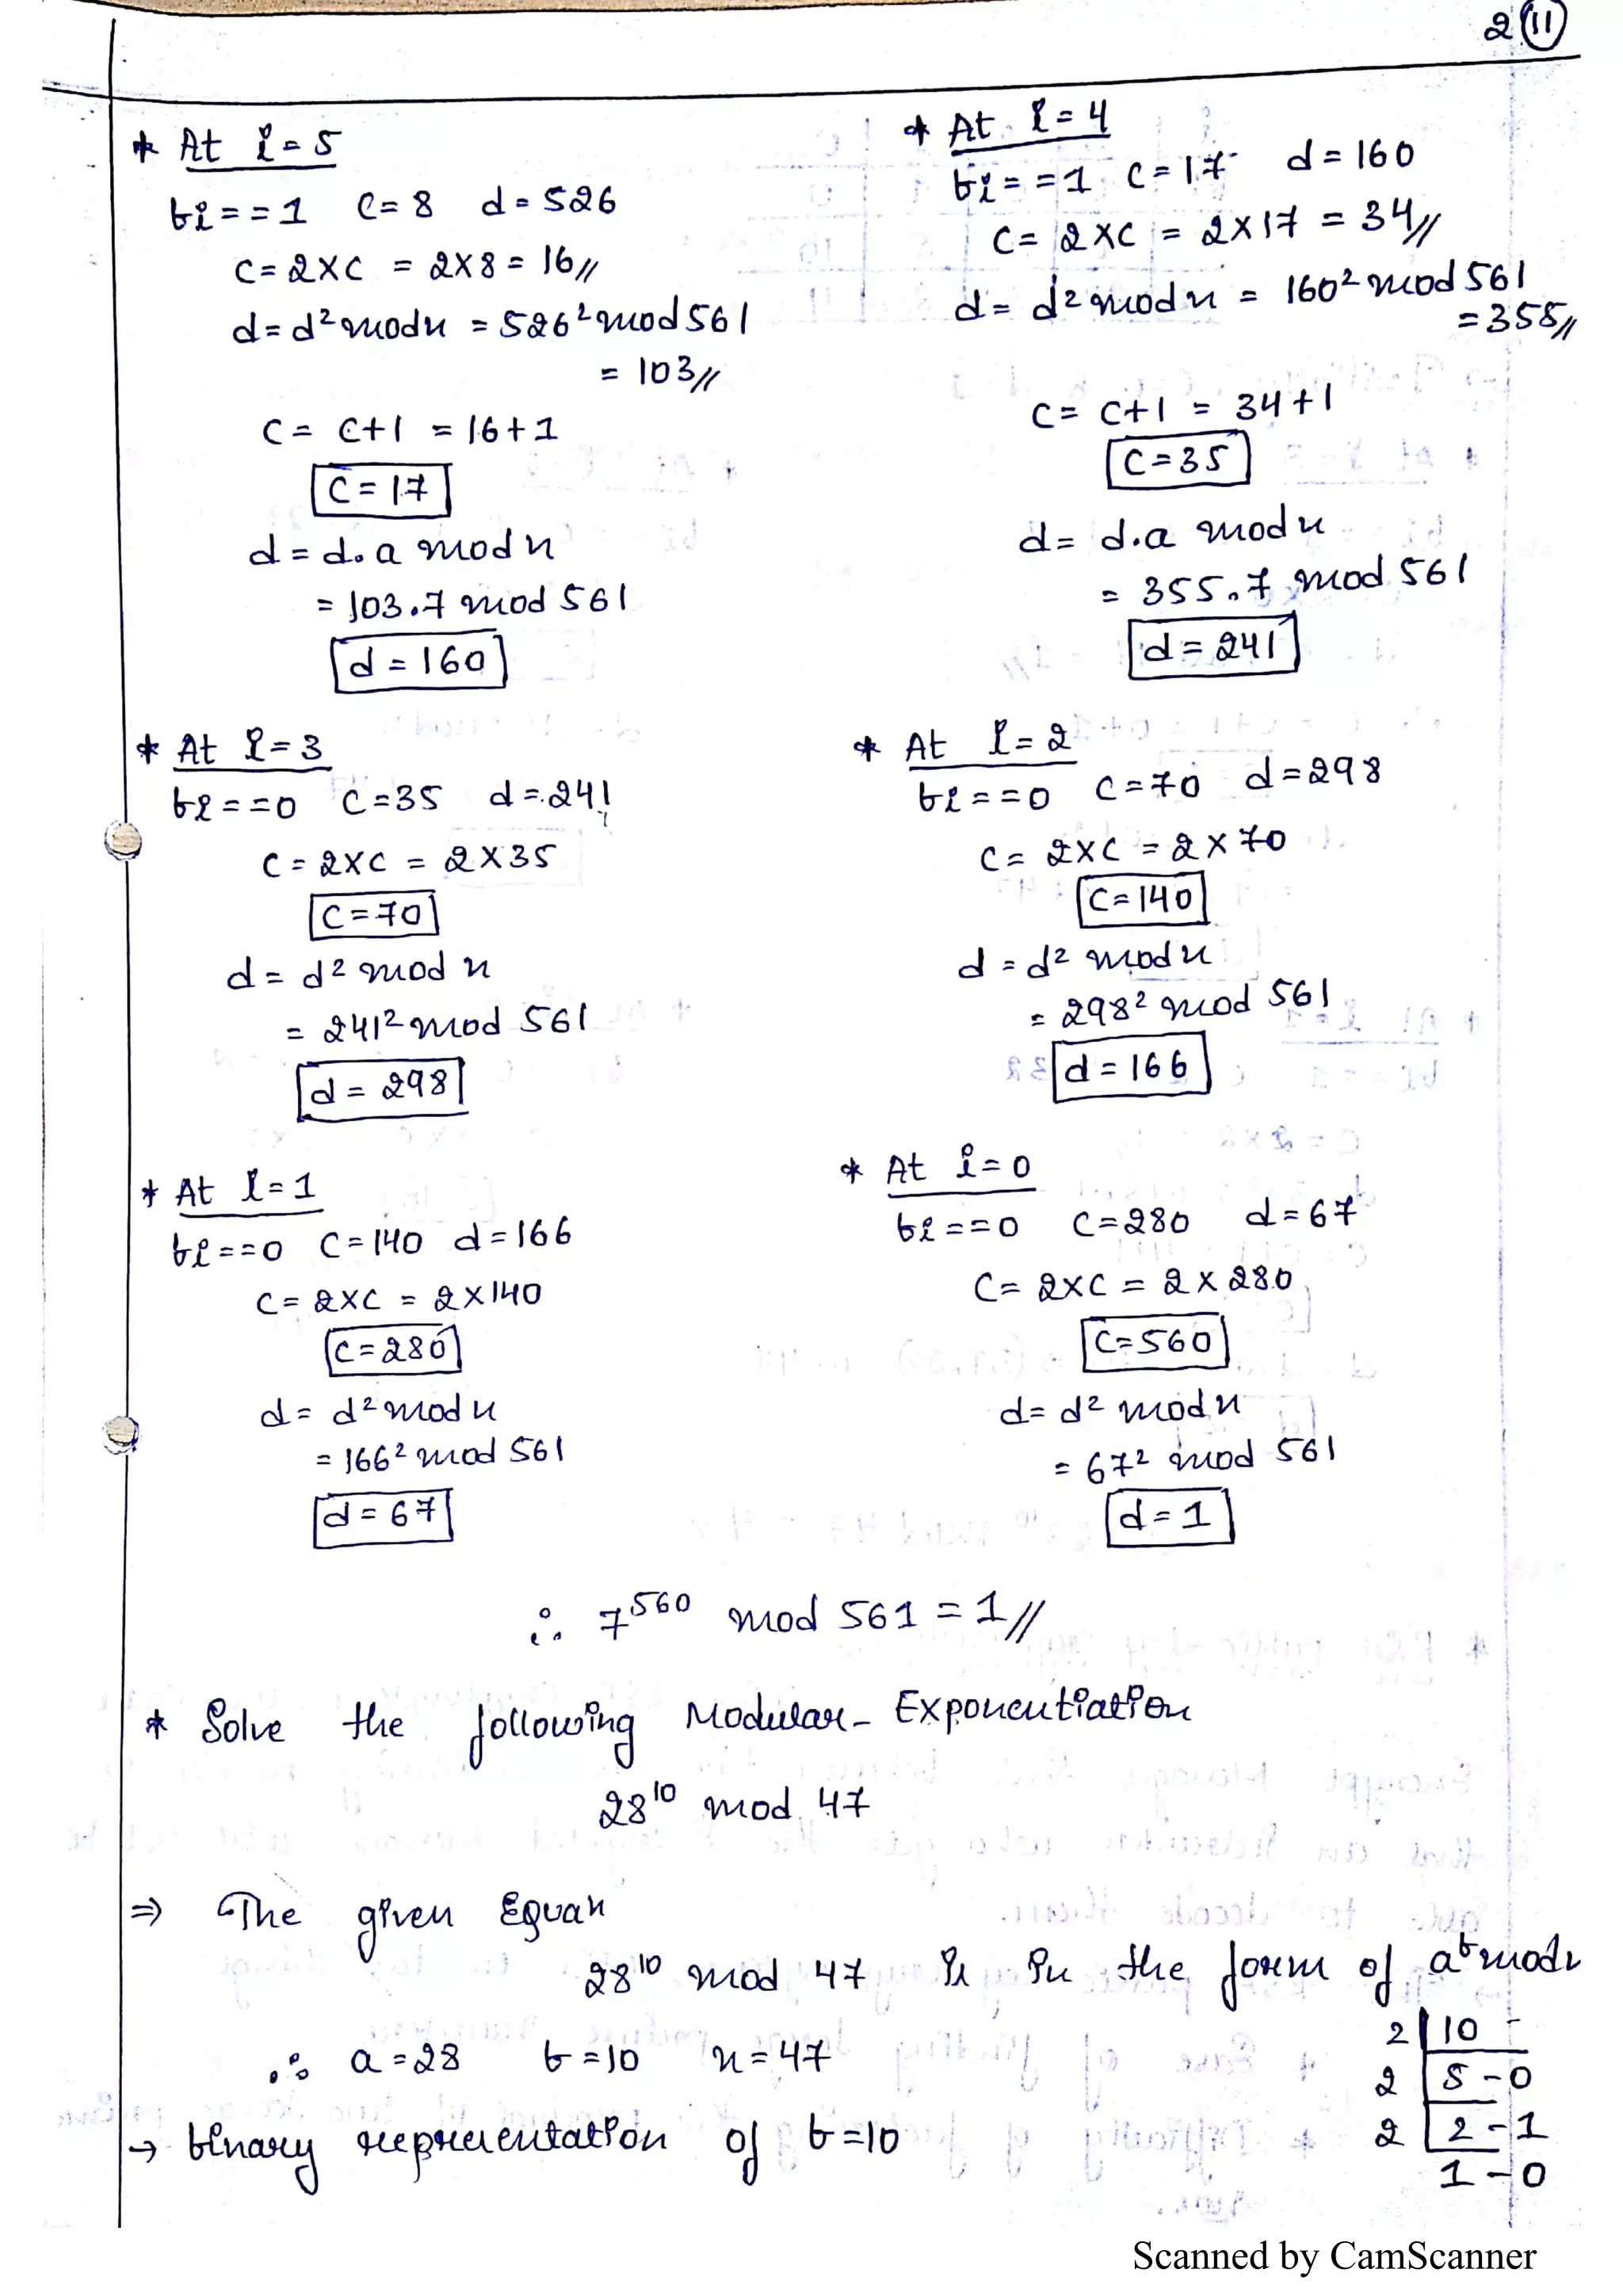 2 11
* At i=5
bi==1 C=8 d=526
C=2×C = 2×8=16//
d=d² mod n = 526² mod 561
= 103//
C= C+1 = 16+1
C=17
d=d.a mod n
=103.7 mod 561
d=160
* At i=4
bi==1 C=17 d=160
C=2×C = 2×17 = 34//
d= d² mod n = 160² mod 561
=355//
C= C+1 = 34+1
C=35
d= d.a mod n
= 355.7 mod 561
d=241
* At i=3
bi==0 C=35 d=241
C=2×C = 2×35
C=70
d= d² mod n
= 241² mod 561
d= 298
* At i=2
bi==0 C=70 d=298
C= 2×C =2×70
C=140
d=d² mod n
= 298² mod 561
d=166
* At i=1
bi==0 C=140 d=166
C= 2×C = 2×140
C=280
d= d² mod n
=166² mod 561
d=67
* At i=0
bi==0 C=280 d=67
C= 2×C = 2×280
C=560
d= d² mod n
= 67² mod 561
d=1
∴ 7⁵⁶⁰ mod 561 = 1//
* Solve the following Modular- Exponentiation
28¹⁰ mod 47
⇒ The given Equan
28¹⁰ mod 47 is in the form of aᵇ mod
∴ a=28 b=10 n=47
→ binary representation of b=10
2 10 -
2 5 -0
2 2 -1
1 -0
Scanned by CamScanner